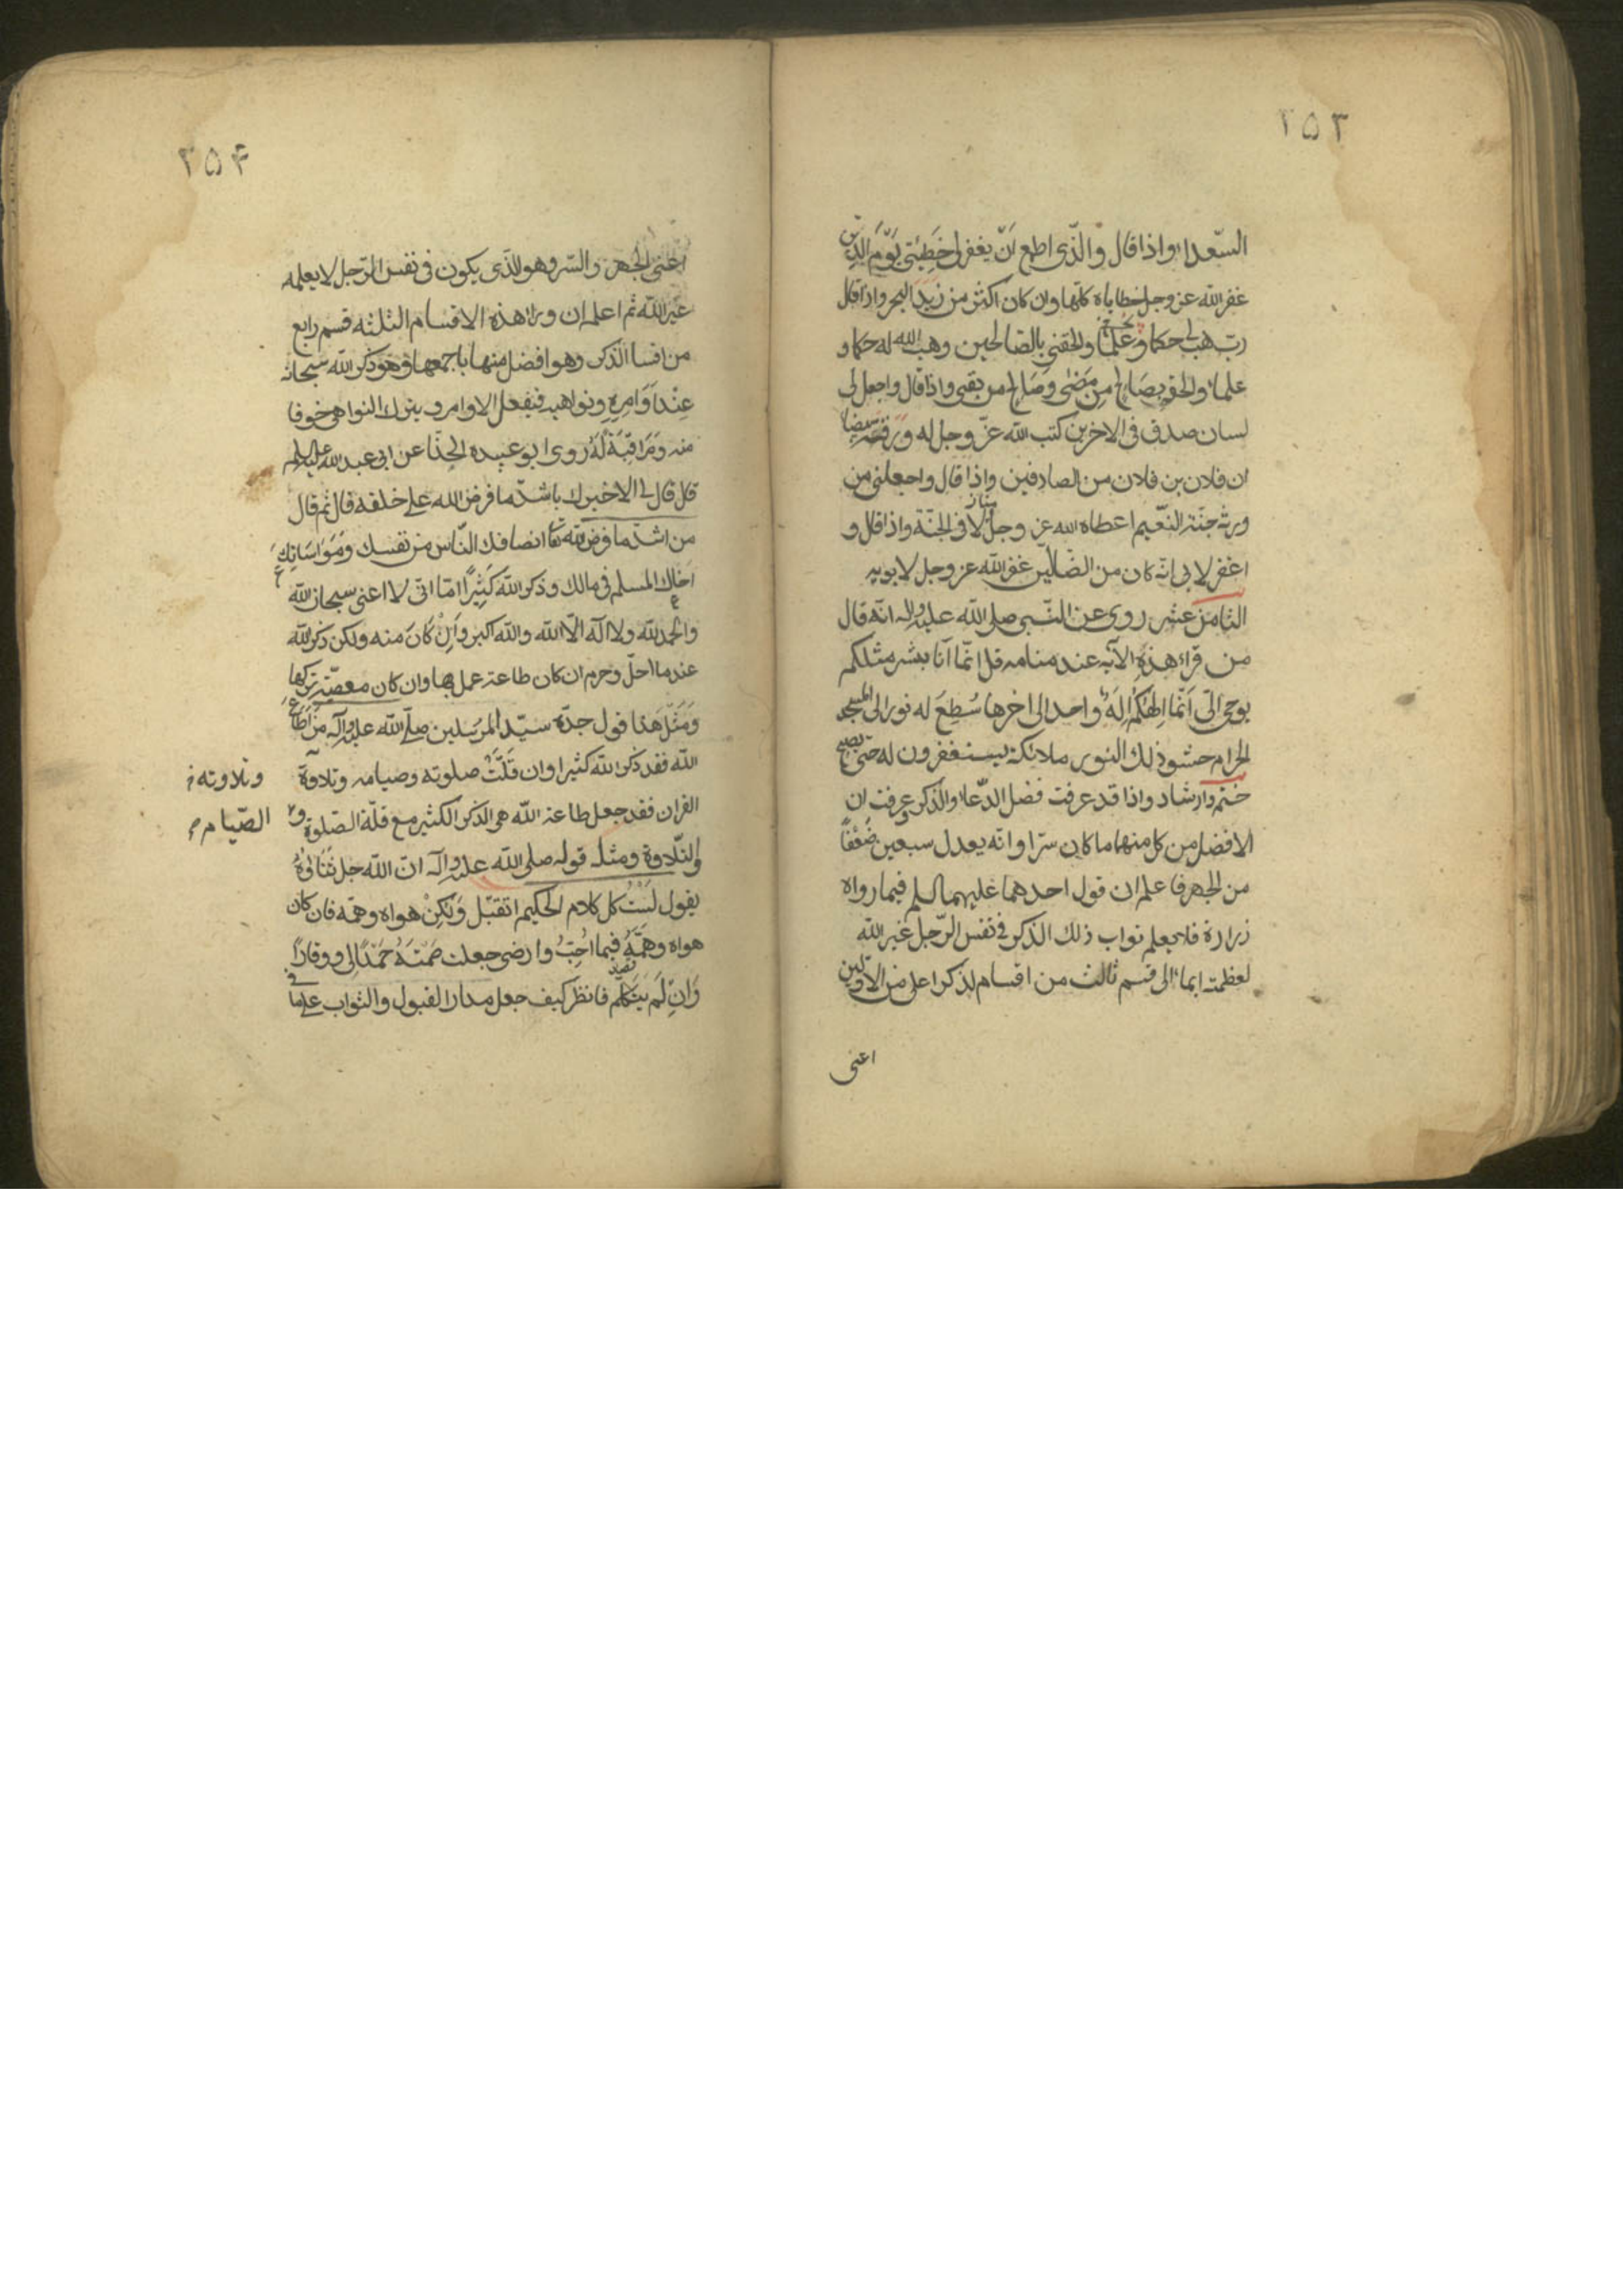 ٢٥٣
السّعداء واذا قال والّذى اطمع اَنْ يغفر لى خَطِيئتى يَوْمَ الدِّين
غفر الله عز وجل خطاياه كلّها وان كان اكثر من زَبَدَ البحر واذا قال
ربّ هب لى حكما وعلما والحقنى بالصالحين وهب الله له حكما و
علما والحق بصَالح مِن مَضٰى وصَالح من بقى واذا قال واجعل لى
لسان صدق فى الاخرين كتب الله عزّ وجل له ورقة بيضا
ان فلان بن فلان من الصادقين واذا قال واجعلنى من
ورثة جنّة النّعيم اعطاه الله عز وجلّ منازلا فى الجنّة واذا قال و
اغفر لابى انّه كان من الضّالّين غفر الله عز وجل لابويه
الثامن عشر روى عن النّبى صلى الله عليه واله انّه قال
من قراء هذهِ الآيه عند منامه قل انّما اَنا بشر مثلكم
يوحى الىّ اَنّما اِلهُكُم اِلَهٌ واحد الى اخرها سُطِعَ له نور الى المسجد
الحرام حشو ذلك النور ملائكة يستغفرون له حتى يصبح
ختم وارشاد واذا قد عرفت فضل الدّعاء والذّكر وعرفت ان
الافضل من كل منهما ما كان سرّا وانّه يعدل سبعين ضعفاً
من الجهر فاعلم ان قول احدهما عليهما السلم فيما رواه
زرارة فلا يعلم ثواب ذلك الذكر فى نفس الرّجل غير الله
لعظمته ايماء الى قسم ثالث من اقسام الذكر اعلى من الاوّلين
اعنى
٢٥۴
اعنى الجهر والسّر وهو الّذى يكون فى نفس الرّجل لا يعلمه
غير الله ثم اعلم ان وراء هذه الاقسام الثلثه قسم رابع
من اقسا الذّكر وهو افضل منها باجمعها وهو ذكر الله سبحانه
عِنْدَ اَوَامِرِهِ ونواهيه فيفعل الاوامر و يترك النواهى خوفا
منه ومَرَاقِبَةً لَهُ روى ابو عبيدة الحذّا عن ابى عبد الله عليه السلم
قال قال لى الا اخبرك باشدّ ما فرض الله على خلقه قال ثم قال
من اشدّ ما فرض الله تعا انصافك النّاس من نفسك ومَوَاسَاتِك
اَخاك المسلم فى مالك وذكر الله كَثِيرًا امّا انّى لا اعنى سبحان الله
والحمد لله ولا اله الّا الله والله اكبر وَاِنْ كَانَ منه ولكن ذكر الله
عند ما احلّ وحرم ان كان طاعة عمل بها وان كان معصيّة تركها
وَمَثَلُ هَذا قول جدّه سيّد المرسَلين صلّى الله عليه وآله من اَطَاعَ
الله فقد ذكر الله كثيرا وان قَلَّتْ صلوته وصيامه وتلاوة
القران فقد جعل طاعة الله هى الذكر الكثير مع قلّة الصّلوة و
التّلاوة ومثله قوله صلى الله عليه وآله انّ الله جل ثَنَاؤُهُ
يقول لَسْتُ كل كلام الحكيم اتقبّل وَلَكِنْ هواه وهمّه فان كان
هواه وهَمَّهُ فيما اُحِبُّ وارضى جعلت صَمْتَهُ حَمْدًا لى ووقارًا
وَاِن لَم يَتكلّم فانظر كيف جعل مدار القبول والثواب على ما
وتلاوته
الصّيام